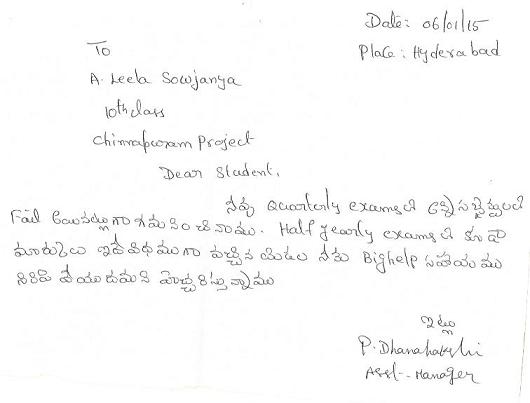 Date: 06/01/15
Place: Hyderabad
To
A. Leela Sowjanya
10th class
Chinnapuram Project
Dear Student,
నీవు Quarterly exams లో అన్ని సబ్జెక్టులలో
Fail అయినట్లుగా గమనించినాము. Half yearly exams లో కూడా
మార్కులు ఇదే విధముగా వచ్చిన యెడల నీకు Bighelp సహాయము
నిలిపి వేయుదుమని హెచ్చరిస్తున్నాము
ఇట్లు
P. Dhanalakshi
Asst-Manager